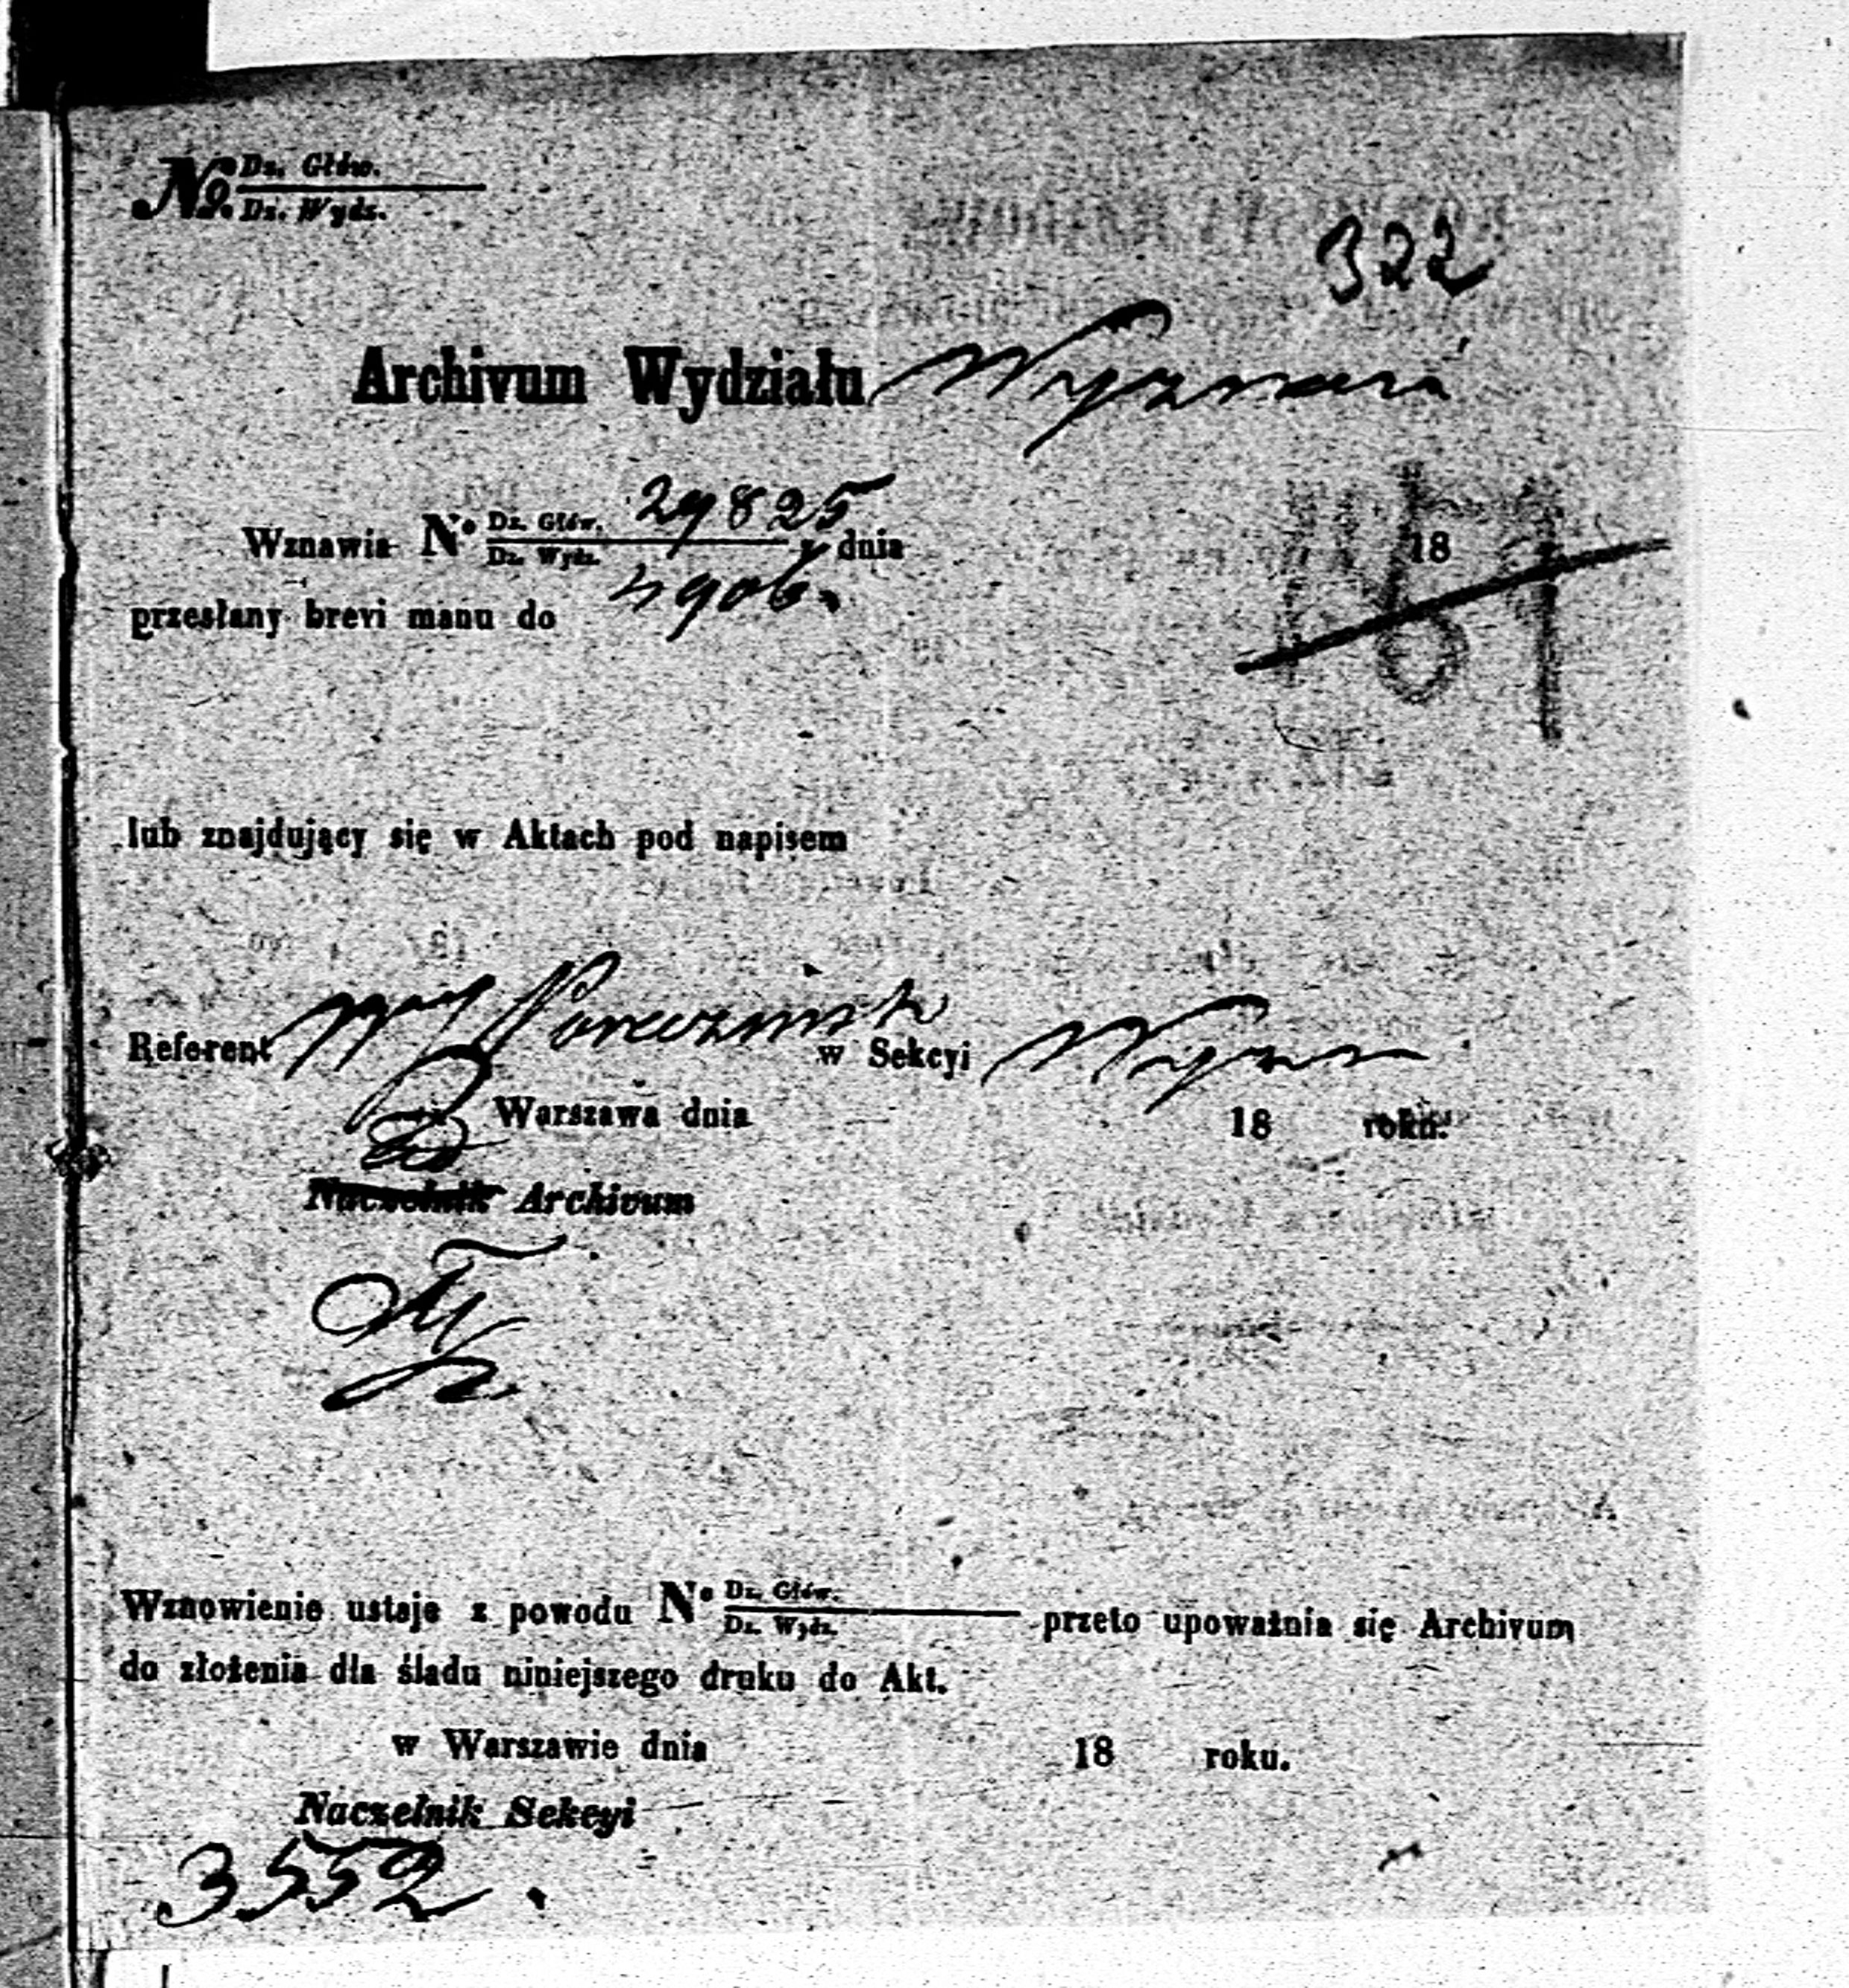 No. Dz. Głów.
Dz. Wydz.
322
Archivum Wydziału Wyznań
Wznawia No Dz. Głów. 29825 z dnia 18
Dz. Wydz. 4906.
przesłany brevi manu do
lub znajdujący się w Aktach pod napisem
Referent w Sekcyi Wyzn
Warszawa dnia 18 roku.
Naczelnik Archivum
Wznowienie ustaje z powodu No Dz. Głów. przeto upoważnia się Archivum
Dz. Wydz.
do złożenia dla śladu niniejszego druku do Akt.
w Warszawie dnia 18 roku.
Naczelnik Sekcyi
3552.